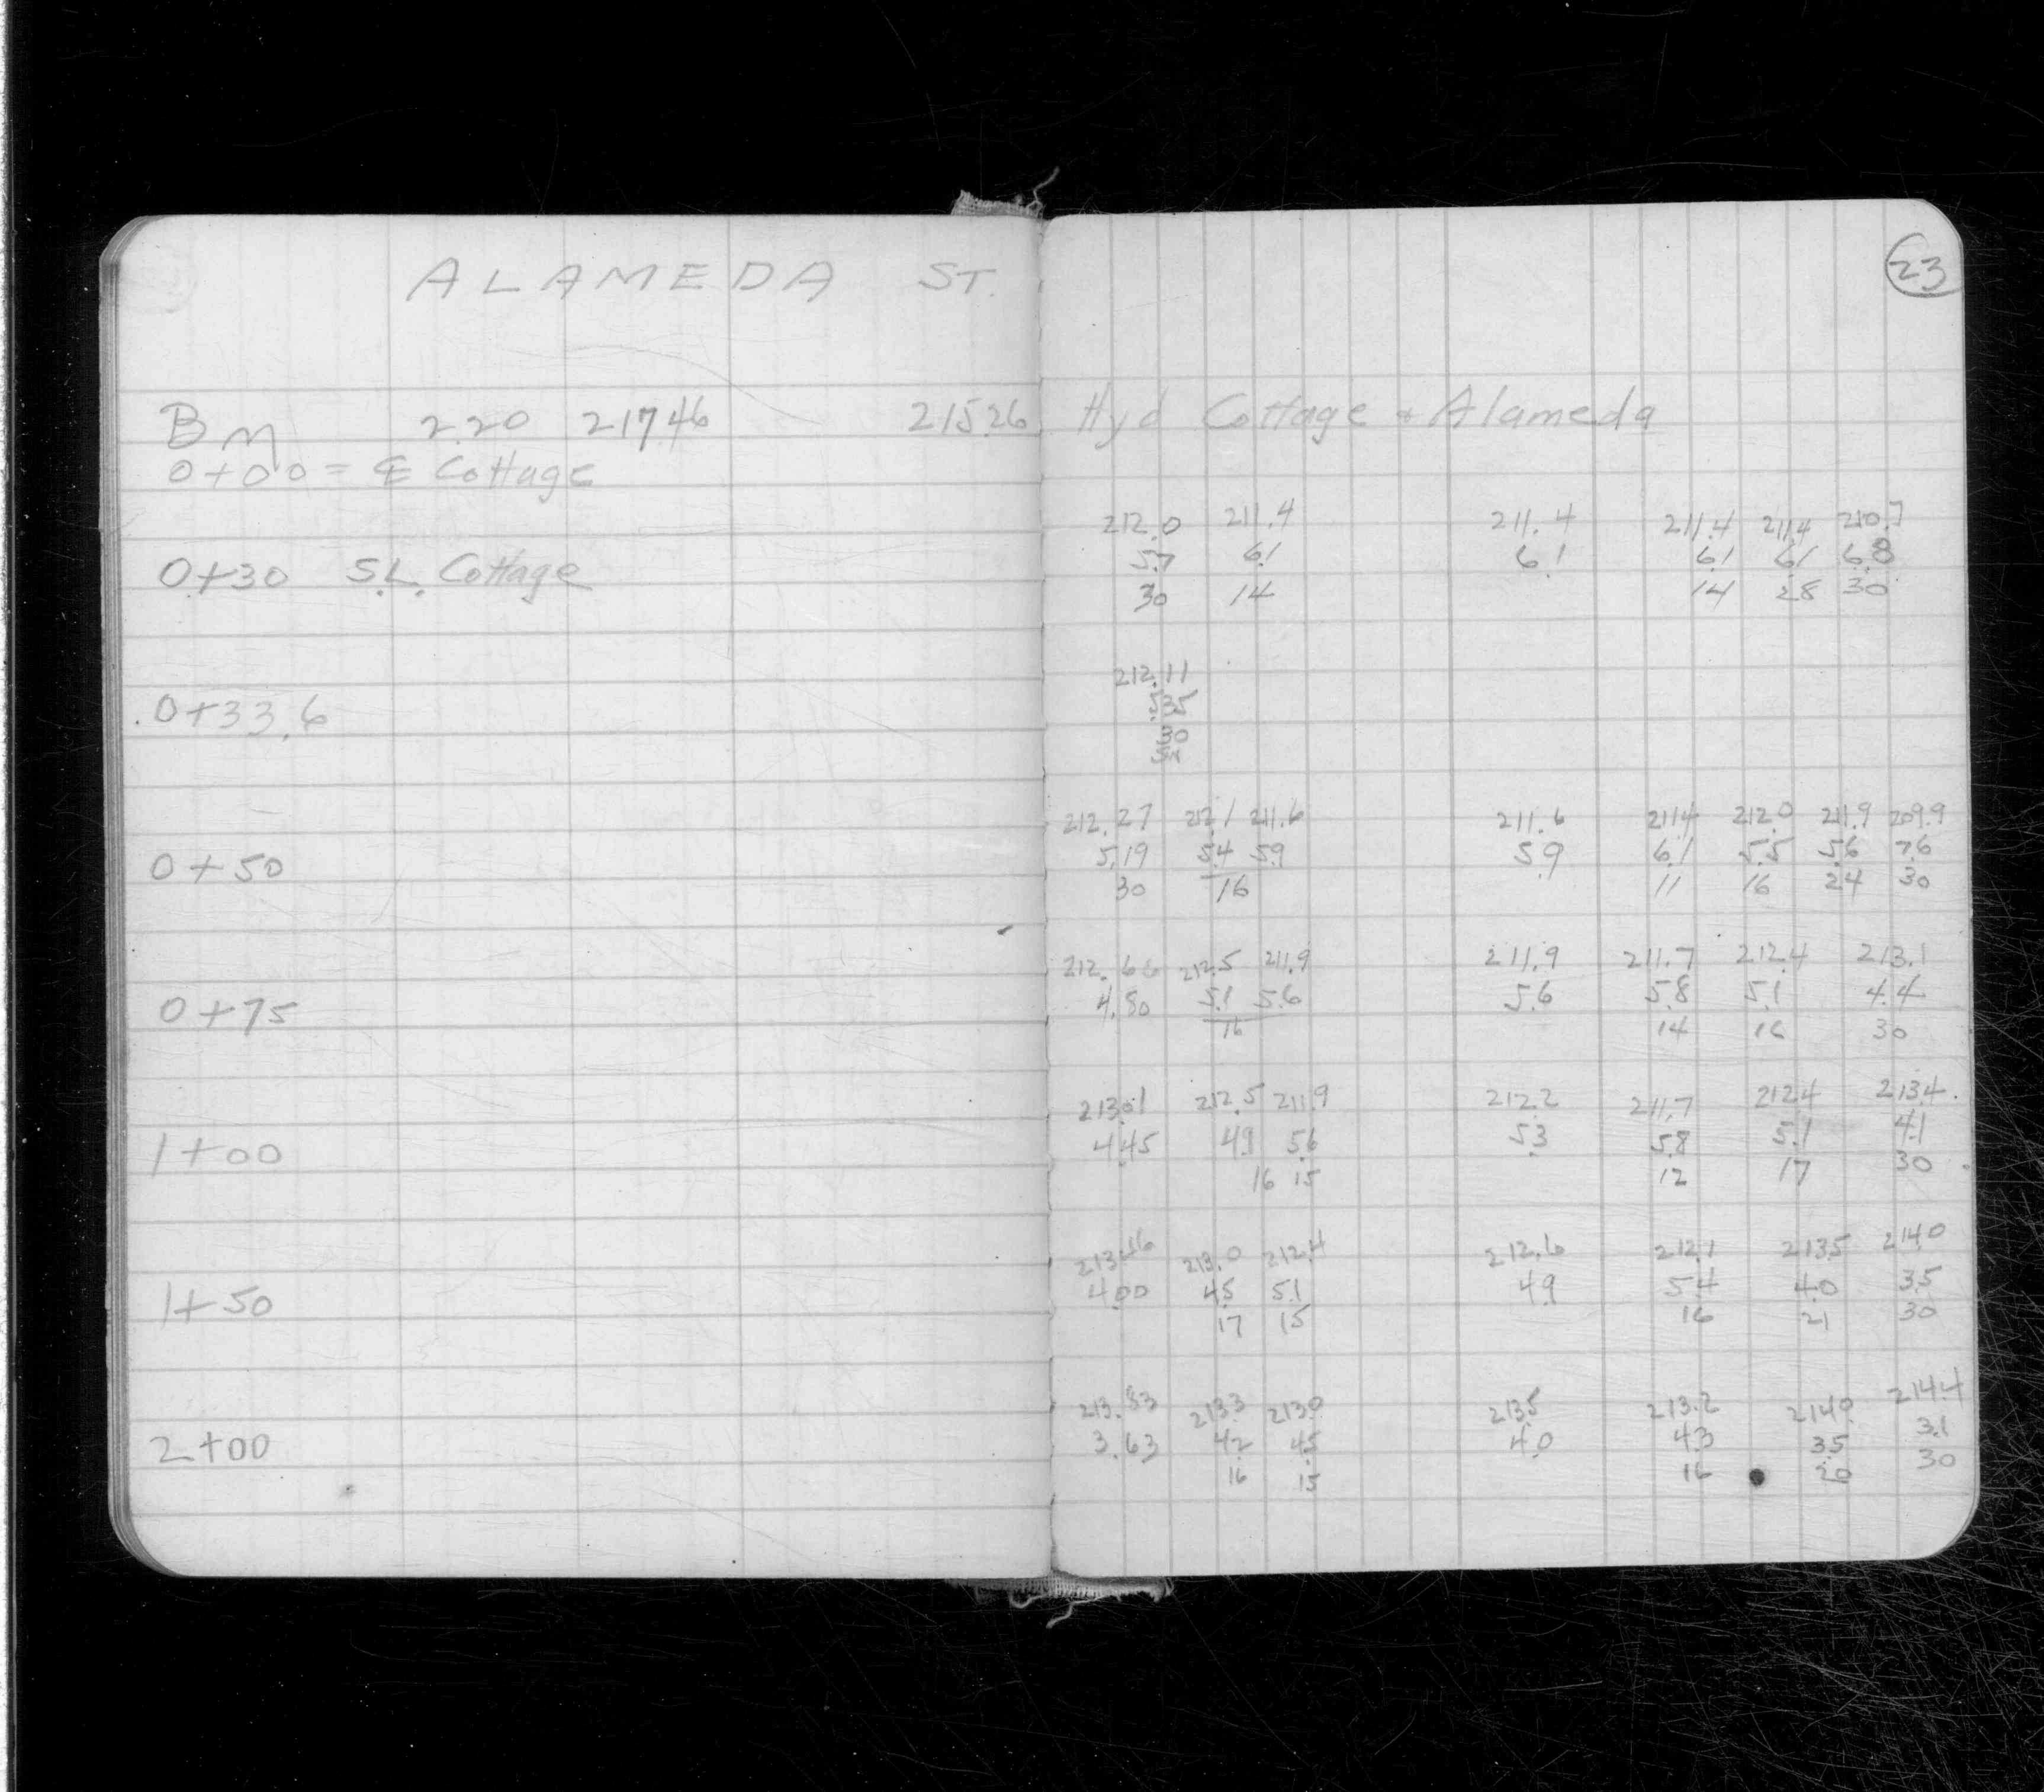 ALAMEDA ST.
23
BM 2.20 217.46 215.26 Hyd Cottage & Alameda
0+00 = ℄ Cottage
212.0 211.4 211.4 211.4 211.4 210.7
0+30 S.L. Cottage 5.7 6.1 6.1 6.1 6.1 6.8
30 14 14 28 30
212.11
0+33.6 5.35
30
212.27 212.1 211.6 211.6 211.4 212.0 211.9 209.9
0+50 5.19 5.4 5.9 5.9 6.1 5.5 5.6 7.6
30 16 11 16 24 30
212.66 212.5 211.9 211.9 211.7 212.4 213.1
0+75 4.80 5.1 5.6 5.6 5.8 5.1 4.4
16 14 16 30
213.01 212.5 211.9 212.2 211.7 212.4 213.4
1+00 4.45 4.9 5.6 5.3 5.8 5.1 4.1
16 15 12 17 30
213.46 213.0 212.4 212.6 212.1 213.5 214.0
1+50 4.00 4.5 5.1 4.9 5.4 4.0 3.5
17 15 16 21 30
213.83 213.3 213.0 213.5 213.2 214.0 214.4
2+00 3.63 4.2 4.5 4.0 4.3 3.5 3.1
16 15 16 20 30